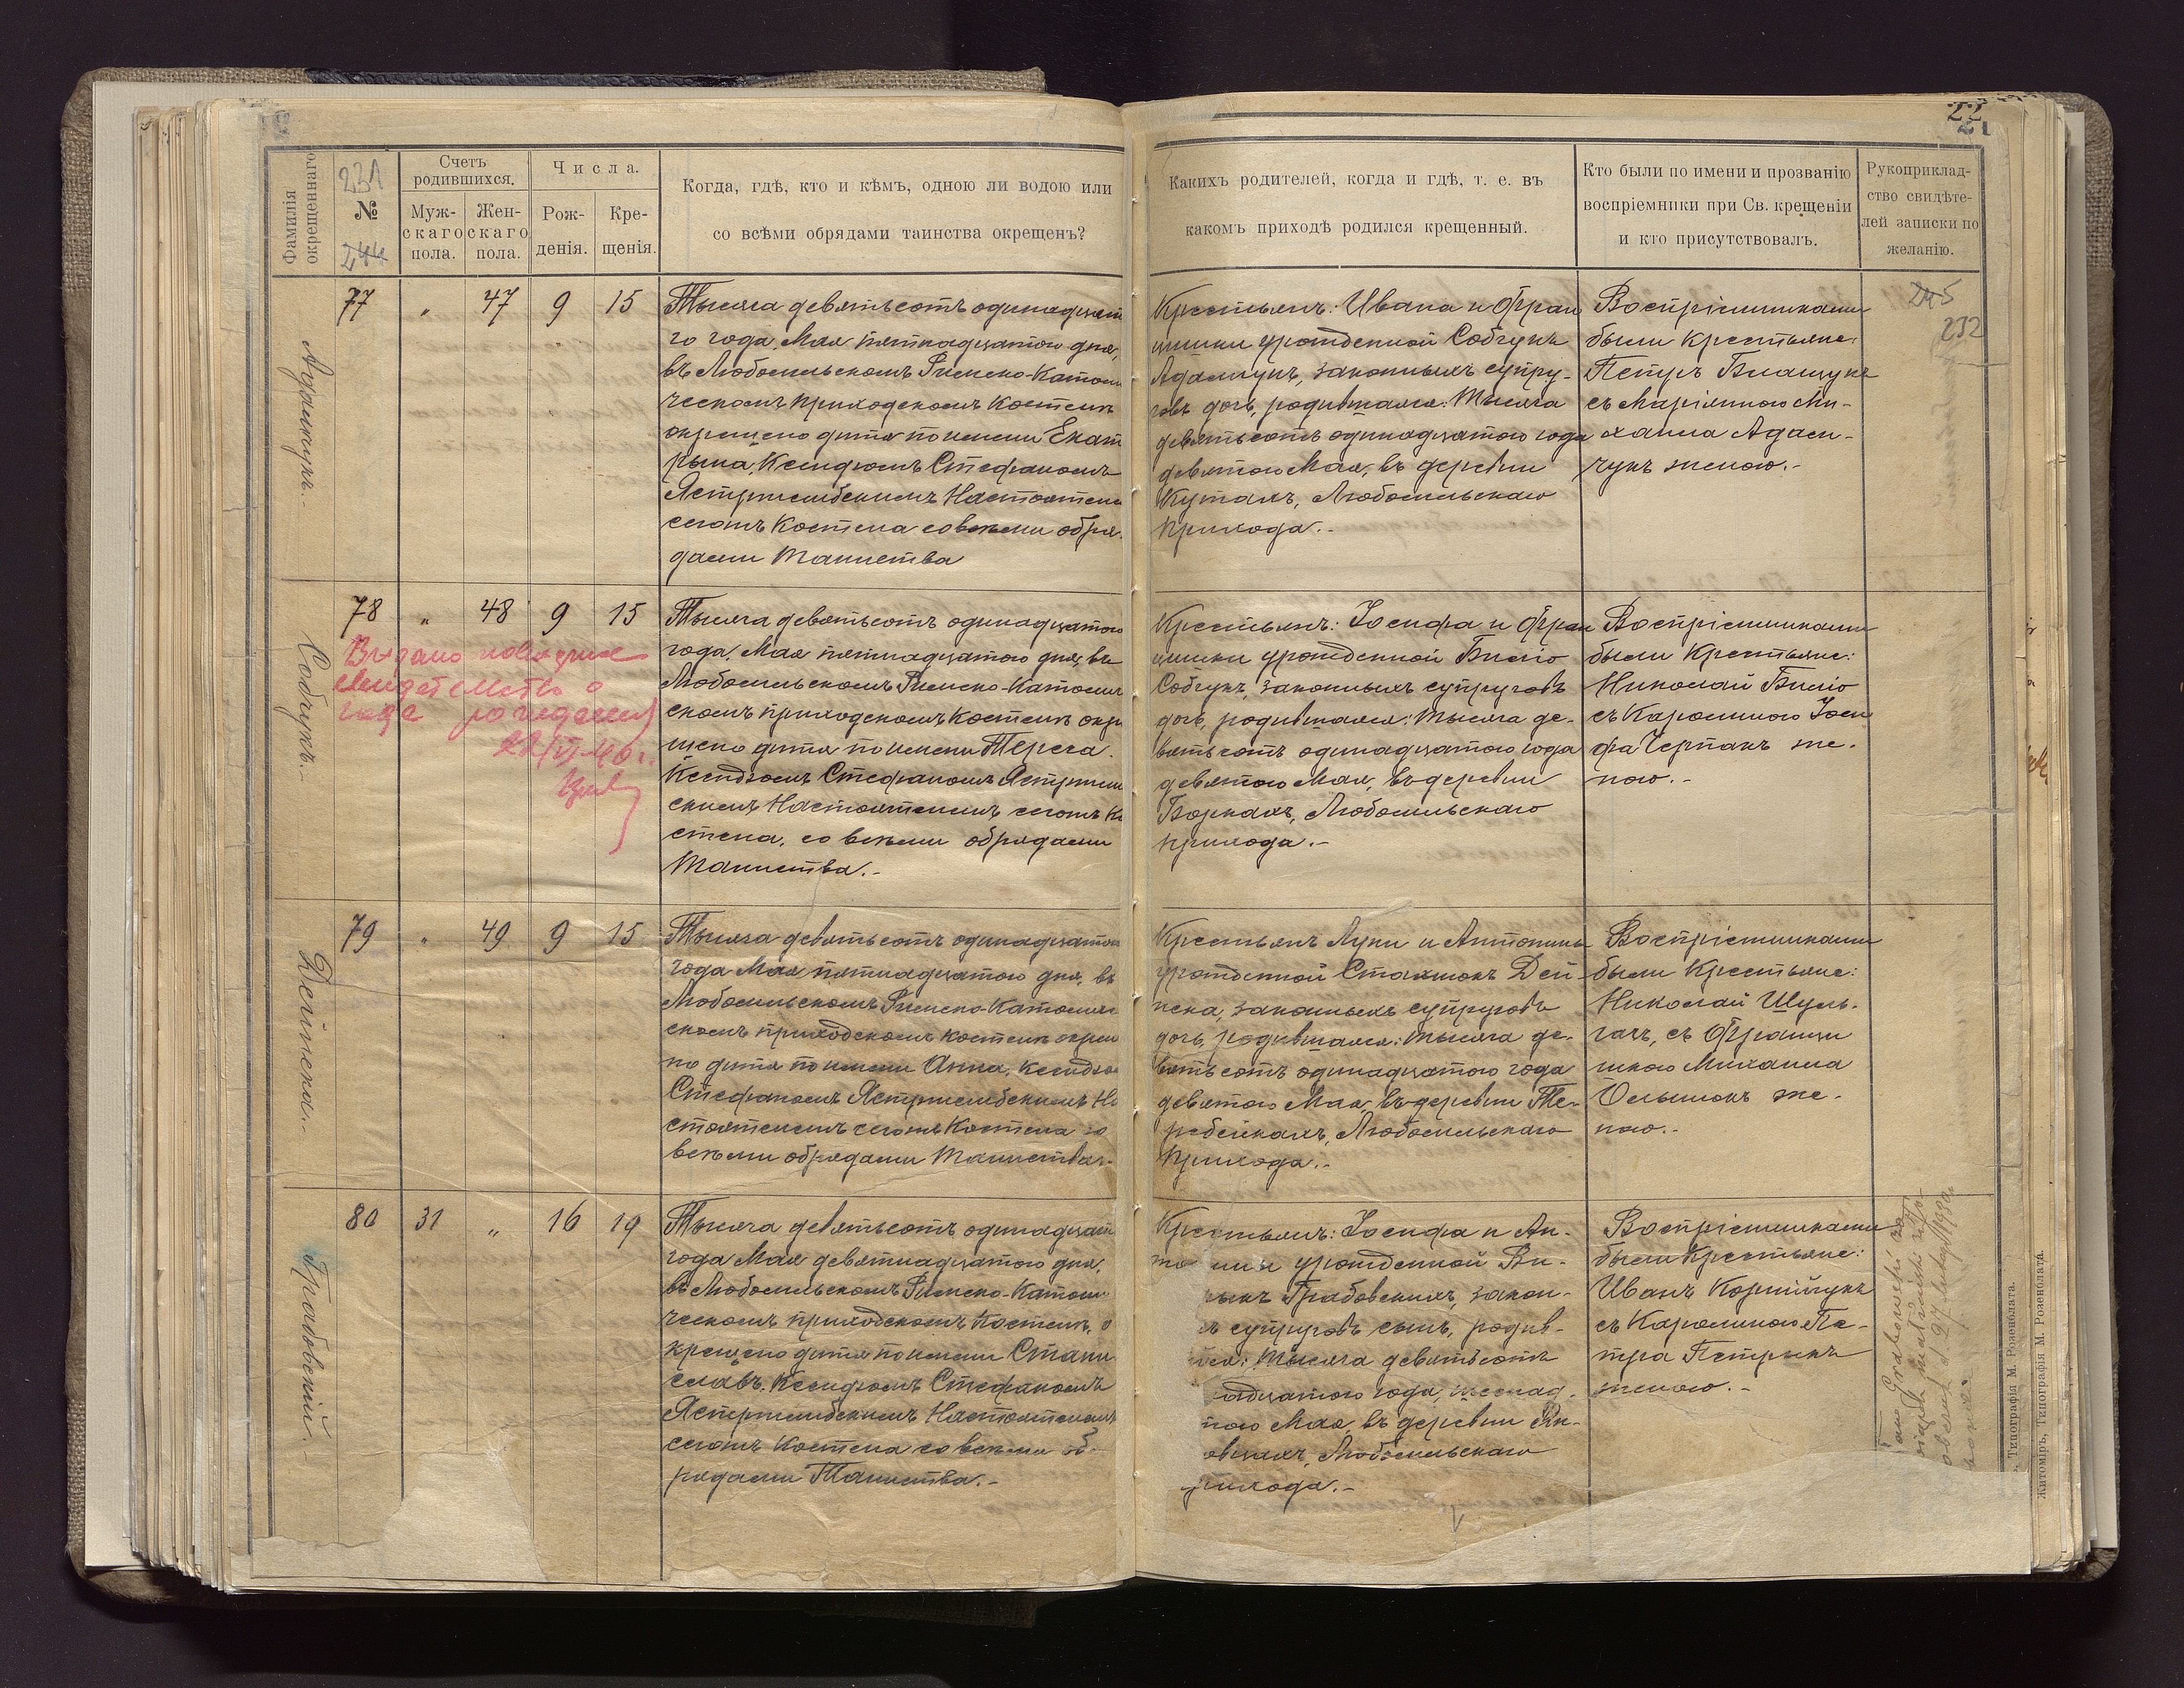 22
21
Фамилія
окрещеннаго
231
№
244
Счетъ
родившихся.
Муж-
скаго
пола.
Жен-
скаго
пола.
Числа.
Рож-
денія.
Кре-
щенія.
Когда, гдѣ, кто и кѣмъ, одною ли водою или
со всѣми обрядами таинства окрещенъ?
Какихъ родителей, когда и гдѣ, т. е. въ
какомъ приходѣ родился крещенный.
Кто были по имени и прозванію
воспріемники при Св. крещеніи
и кто присутствовалъ.
Рукоприклад-
ство свидѣте-
лей записки по
желанію.
Адамчукъ.
77 „ 47 9 15
Тысяча девятьсотъ одинадцато
го года, Мая пятнадцатого дня,
въ Любомльскомъ Римско-Католи
ческомъ приходскомъ костелѣ
окрещено дитя по имени Екат
рына, Ксендзомъ Стефаномъ
Ястржембскимъ Настоятеле
сегожъ Костела со всѣми обря-
дами Таинства
Крестьянъ: Ивана и Фран
цишки урожденной Собчукъ
Адамчукъ, законныхъ супру-
говъ дочь, родившаяся: Тысяча
девятьсотъ одинадцатого года
девятого Мая, въ деревни
Кутахъ, Любомльскаго
прихода.-
Воспріемниками
были крестьяне:
Петръ Блащукъ
съ Маріянною Ми-
хаила Адам-
чукъ женою.-
245
232
Собчукъ.
78 „ 48 9 15
Выдано повторное
свидетельство о
годе рождения
22/VI-40 г.
Тысяча девятьсотъ одинадцатого
года, Мая пятнадцатого дня, въ
Любомльскомъ Римско-Католиче
скомъ приходскомъ Костелѣ окре
щено дитя по имени Тереса.
Ксендзомъ Стефаномъ Ястржемб
скимъ Настоятелемъ сегожъ Ко
стела, со всѣми обрядами
Таинства.-
Крестьянъ: Іосифа и Фран
цишки урожденной Билію
Собчукъ, законныхъ супруговъ
дочь, родившаяся: Тысяча де-
вятьсотъ одинадцатого года
девятого Мая, въ деревни
Боркахъ, Любомльскаго
прихода.-
Воспріемниками
были Крестьяне:
Николай Билію
съ Каролиною Іоси
фа Черпакъ же-
ною.-
Дейнека.
79 „ 49 9 15
Тысяча девятьсотъ одинадцатого
года Мая пятнадцатого дня, въ
Любомльскомъ Римско-Католиче
скомъ приходскомъ костелѣ окреще
но дитя по имени Анна, Ксендзо
Стефаномъ Ястржембскимъ На
стоятелемъ сегожъ Костела со
всѣми обрядами Таинства.-
Крестьянъ Луки и Антонины
урожденной Стахнюкъ Дей-
нека, законныхъ супруговъ
дочь, родившаяся: Тысяча де-
вятьсотъ одинадцатого года
девятого Мая, въ деревни Те-
ребейкахъ, Любомльскаго
прихода.-
Воспріемниками
были Крестьяне:
Николай Шуль-
гачъ, съ Францы
шкою Михаила
Ольшюкъ же-
ною.-
Грабовскій.
80 31 „ 16 19
Тысяча девятьсотъ одинадцат
года Мая девятнадцатого дня,
въ Любомльскомъ Римско-Католи
ческомъ приходскомъ Костелѣ, о
крещено дитя по имени Стани
славъ, Ксендзомъ Стефаномъ
Ястржембскимъ Настоятелемъ
сегожъ Костела со всѣми об-
рядами Таинства.-
Крестьянъ: Іосифа и Ан-
то нины урожденной Ви-
Грабовскихъ, закон-
супруговъ сынъ, родив-
Тысяча девятьсотъ
надцатого года, шеснад-
того Мая, въ деревни
Любомльскаго
прихода.-
Воспріемниками
были Крестьяне:
Иванъ Корнійчукъ
съ Каролиною Пе-
тра Петрукъ
женою.-
Grabowski
d. 27 lutego 1930
Типографія М. Розенблата.
Житоміръ, Типографія М. Розенблата.